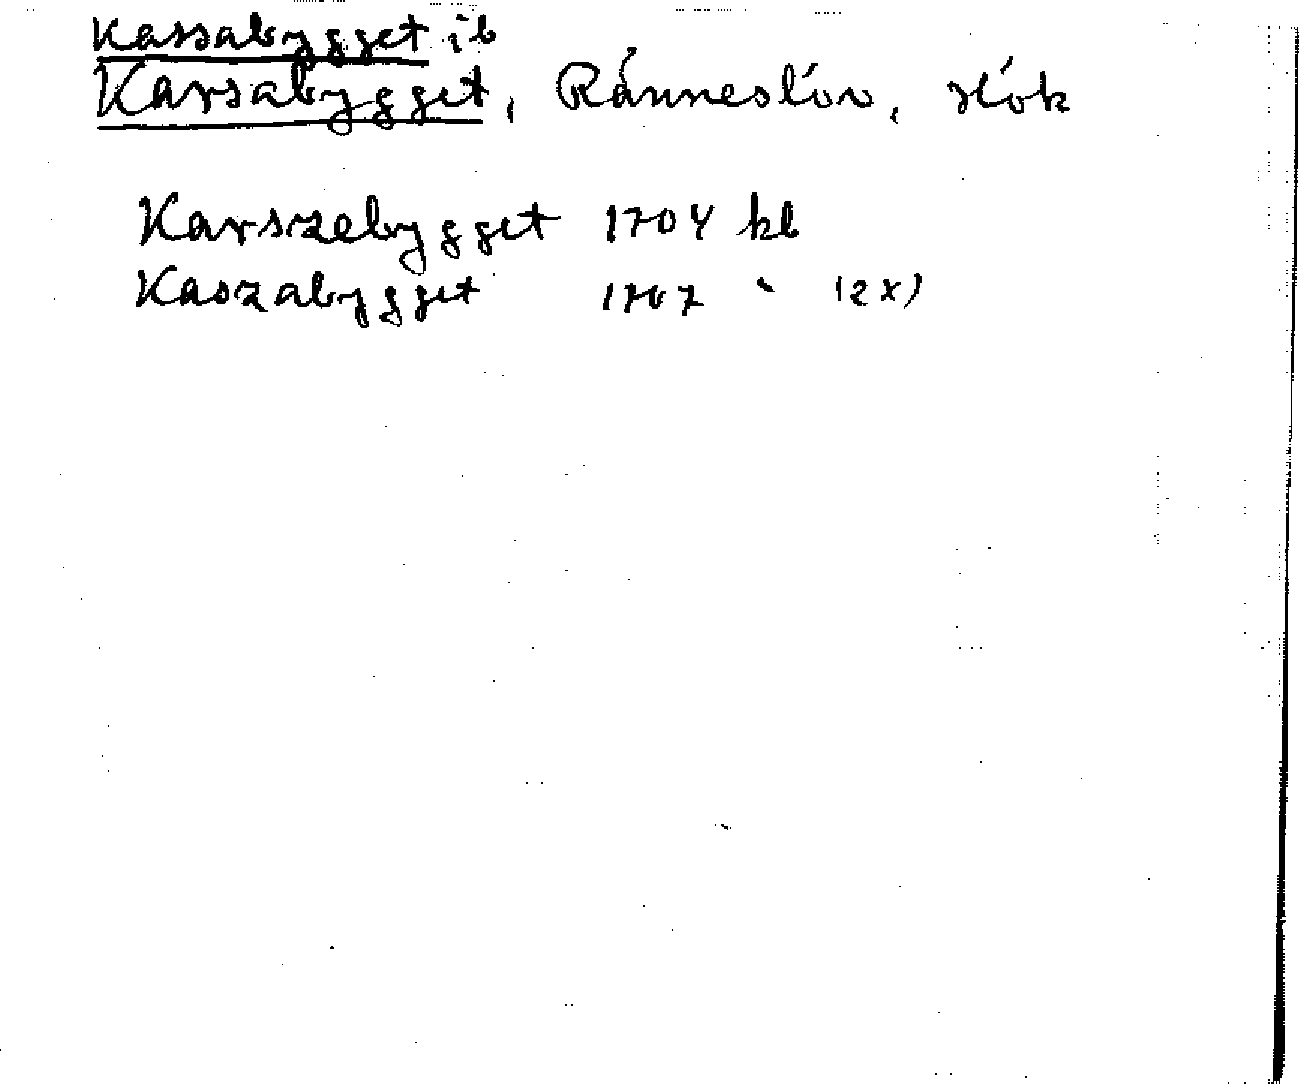 Kassabygget ib
Karsabygget, Ränneslöv, Hök
Karszebygget 1704 kb
Kaszabygget 1707 " (2x)